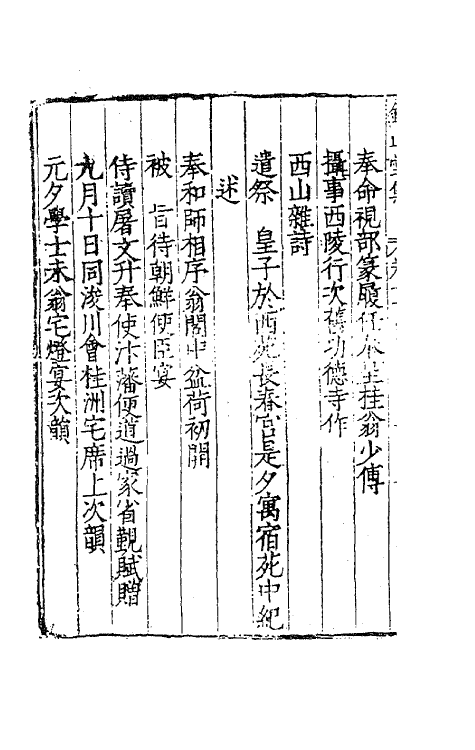 奉命視部篆履任奉呈桂翁少傅
攝事西陵行次舊功德寺作
西山雜詩
遣祭　皇子於西苑長春宮是夕寓宿苑中紀
述
奉和師相序翁閣中盆荷初開
被　旨待朝鮮使臣宴
侍讀屠文升奉使汴藩便道過家省覲賦贈
九月十日同浚川會桂洲宅席上次韻
元夕學士未翁宅燈宴次韻